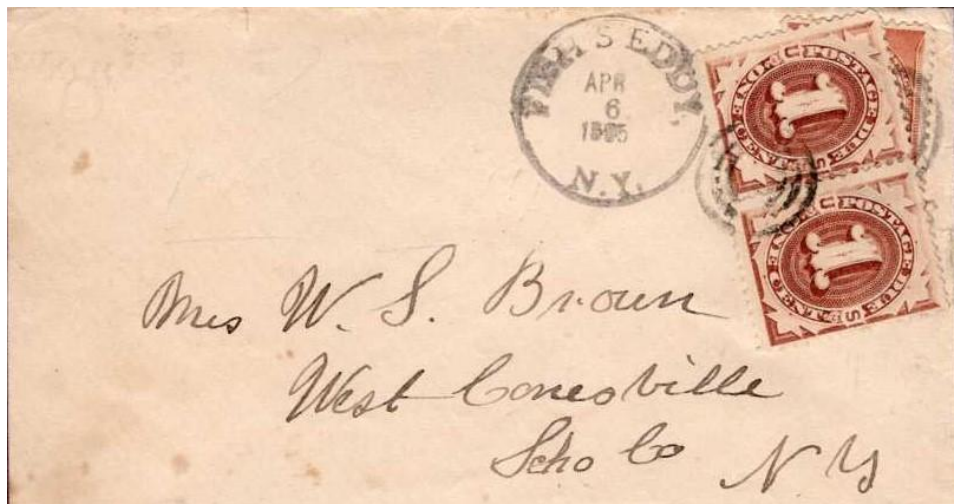 FISH'S EDDY,
APR
6
1895
N.Y.
U S POSTAGE DUE
ONE CENT
1
U S POSTAGE DUE
ONE CENT
1
Mrs W. S. Brown
West Conesville
Scho Co N Y